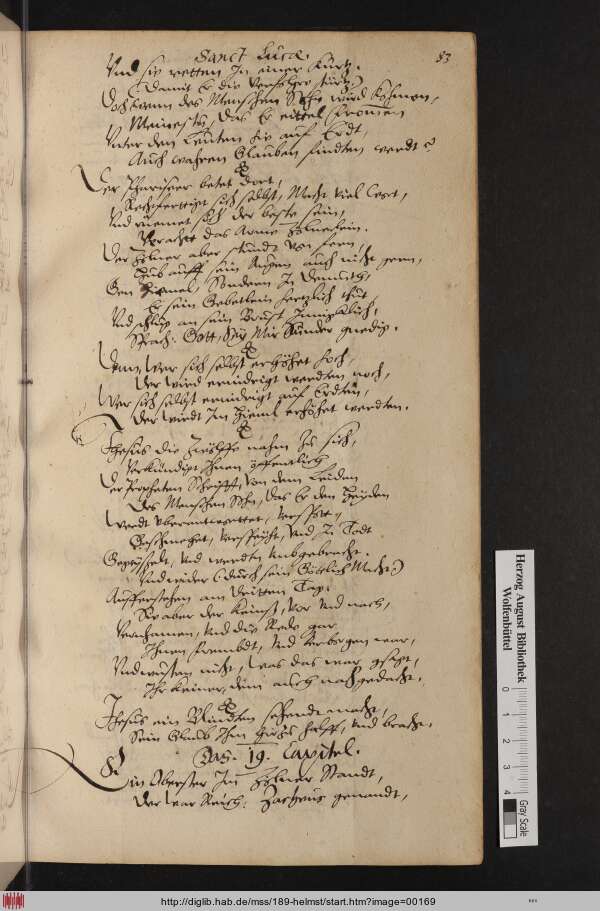 Sanct Lucæ. 83
Vnd sie retten In einer Kürtz.
(Damit Er die
Doch wenn des Menschen Sohn wird kohmen,
Meinestu, das Er eittel fromen
Vnter den Leuten hie auf Erdt,
Auch wahren Glauben findten werdt?
Der Phariseer betet dort,
Rechtfertigt sich selbst, Macht viel wort,
Vnd rüemet sich der beste sein,
Veracht das Arme Zölnerlein.
Der Zölner aber stundt von fern,
Hub auff sein Augen auch nicht gern,
Gen Himel, Sondern In Demuth,
Er sein Gebetlein hertzlich thut,
Vnd schlug an sein Brust Inniglich,
Sprach: Gott, Sey Mir Sünder gnedig.
Denn Wer sich selbst erhöhet hoch,
Der wird ernidrigt werdten noch,
Wer sich selbst ernidrigt auf Erdten,
Der wirdt Im Himel erhöhet werdten.
Jhesus die Zwölffe nahm zu sich,
Verkündigt Ihnen öffentlich
Der Propheten Schrifft, Von dem Leiden
Des Menschen Sohn, das Er den Heyden
Werdt Vberantworttet, Verspott,
Geschmehet, Verspeyht, Vnd zu Todt
Gegeisselt, Vnd werdte Vmbgebracht.
Vnd wider (durch sein Göttlich Macht)
Aufferstehen am dritten Tag.
Sie aber der keins, Vor Vnd nach,
Vernahmen, Vnd die Rede gar
Ihnen frembdt, Vnd Verborgen war,
Vnd wusten nicht, was das war gsagt,
Ihr keiner, dem auch nachgedacht.
Jhesus ein Blindten sehendt macht,
Sein Glaub Ihm hülff, Vnd bracht.
Das. 19. Capitel.
Ein Oberster Im Zölner Standt,
Der war Reich: Zacheus genandt,
Herzog August Bibliothek
Wolfenbüttel
0 1 2 3 4
Gray Scale
http://diglib.hab.de/mss/189-helmst/start.htm?image=00169